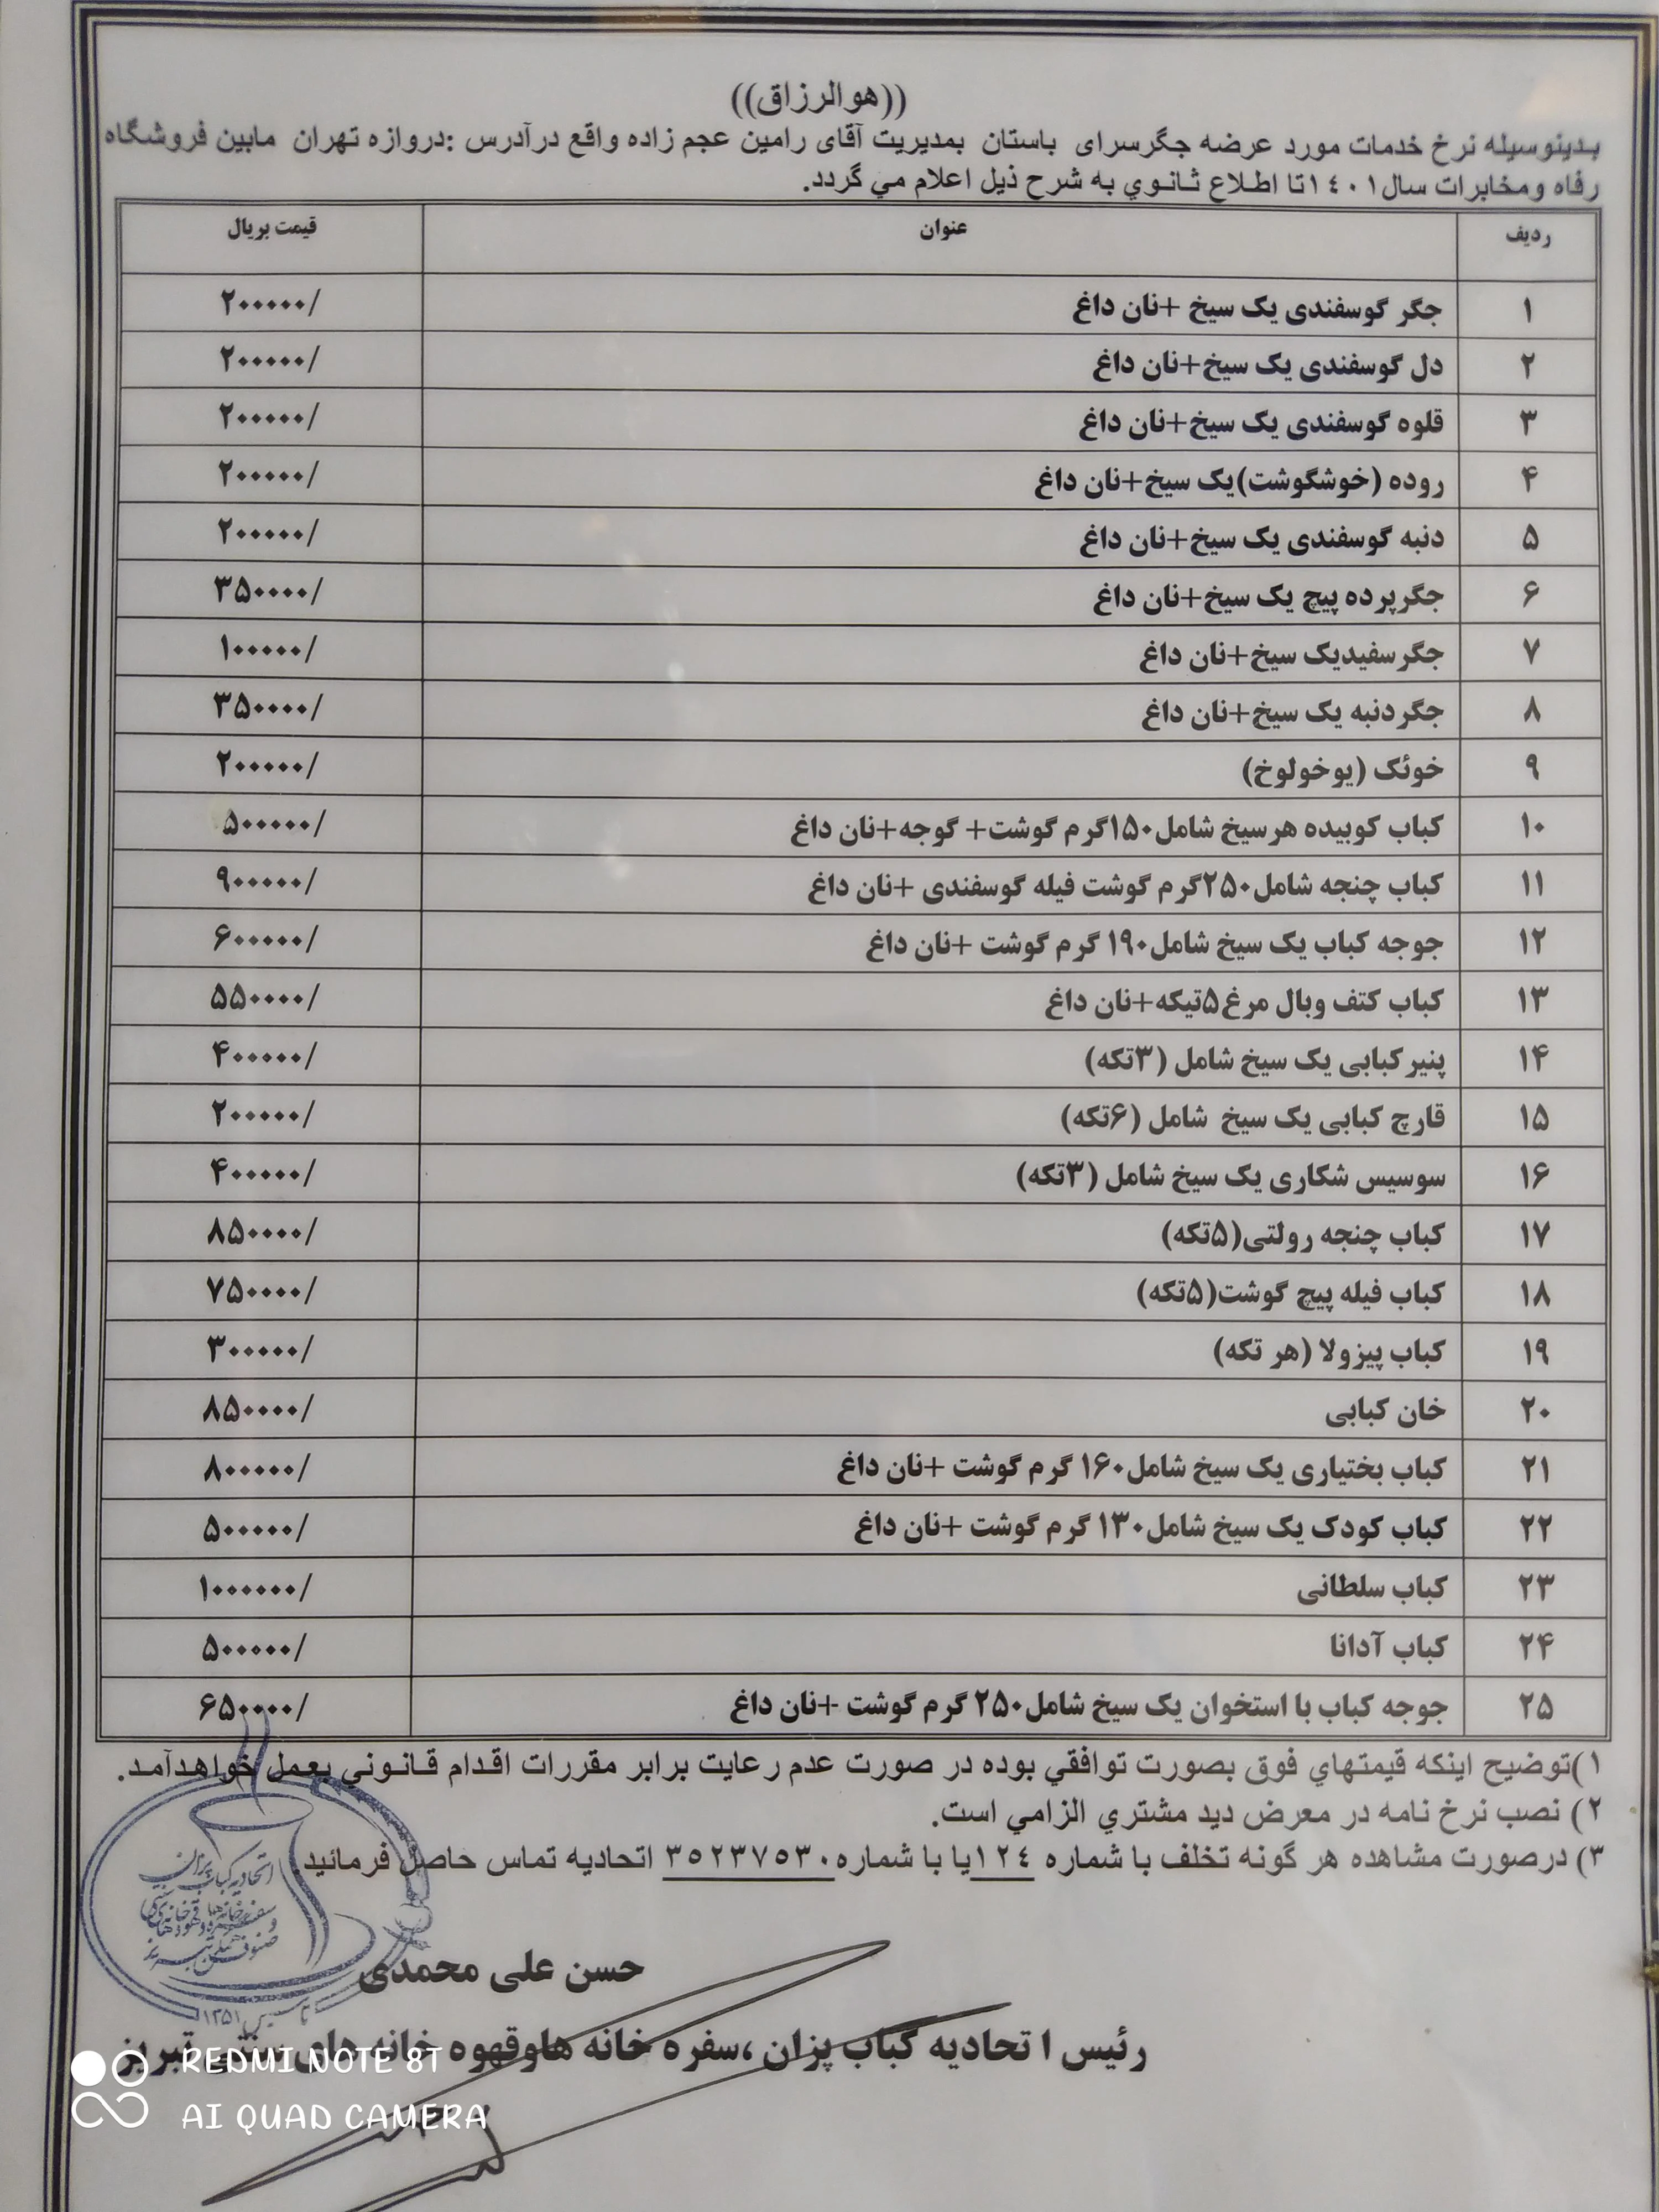 ((هوالرزاق))
بدینوسیله نرخ خدمات مورد عرضه جگرسرای باستان بمدیریت آقای رامین عجم زاده واقع درآدرس :دروازه تهران مابین فروشگاه
رفاه ومخابرات سال۱۴۰۱تا اطلاع ثانوي به شرح ذیل اعلام مي گردد.
ردیف عنوان قیمت بریال
۱ جگر گوسفندی یک سیخ +نان داغ ۲۰۰۰۰۰/
۲ دل گوسفندی یک سیخ+نان داغ ۲۰۰۰۰۰/
۳ قلوه گوسفندی یک سیخ+نان داغ ۲۰۰۰۰۰/
۴ روده (خوشگوشت)یک سیخ+نان داغ ۲۰۰۰۰۰/
۵ دنبه گوسفندی یک سیخ+نان داغ ۲۰۰۰۰۰/
۶ جگرپرده پیچ یک سیخ+نان داغ ۳۵۰۰۰۰/
۷ جگرسفیدیک سیخ+نان داغ ۱۰۰۰۰۰/
۸ جگردنبه یک سیخ+نان داغ ۳۵۰۰۰۰/
۹ خوئک (یوخولوخ) ۲۰۰۰۰۰/
۱۰ کباب کوبیده هرسیخ شامل۱۵۰گرم گوشت+ گوجه+نان داغ ۵۰۰۰۰۰/
۱۱ کباب چنجه شامل۲۵۰گرم گوشت فیله گوسفندی +نان داغ ۹۰۰۰۰۰/
۱۲ جوجه کباب یک سیخ شامل۱۹۰ گرم گوشت +نان داغ ۶۰۰۰۰۰/
۱۳ کباب کتف وبال مرغ۵تیکه+نان داغ ۵۵۰۰۰۰/
۱۴ پنیرکبابی یک سیخ شامل (۳تکه) ۴۰۰۰۰۰/
۱۵ قارچ کبابی یک سیخ شامل (۶تکه) ۲۰۰۰۰۰/
۱۶ سوسیس شکاری یک سیخ شامل (۳تکه) ۴۰۰۰۰۰/
۱۷ کباب چنجه رولتی(۵تکه) ۸۵۰۰۰۰/
۱۸ کباب فیله پیچ گوشت(۵تکه) ۷۵۰۰۰۰/
۱۹ کباب پیزولا (هر تکه) ۳۰۰۰۰۰/
۲۰ خان کبابی ۸۵۰۰۰۰/
۲۱ کباب بختیاری یک سیخ شامل۱۶۰ گرم گوشت +نان داغ ۸۰۰۰۰۰/
۲۲ کباب کودک یک سیخ شامل۱۳۰ گرم گوشت +نان داغ ۵۰۰۰۰۰/
۲۳ کباب سلطانی ۱۰۰۰۰۰۰/
۲۴ کباب آدانا ۵۰۰۰۰۰/
۲۵ جوجه کباب با استخوان یک سیخ شامل۲۵۰ گرم گوشت +نان داغ ۶۵۰۰۰۰/
۱)توضیح اینکه قیمتهاي فوق بصورت توافقي بوده در صورت عدم رعایت برابر مقررات اقدام قانوني بعمل خواهدآمد.
۲) نصب نرخ نامه در معرض دید مشتري الزامي است.
۳) درصورت مشاهده هر گونه تخلف با شماره ۱۲۴یا با شماره۳۵۲۳۷۵۳۰ اتحادیه تماس حاصل فرمائید.
اتحادیه کباب پزان
تاسیس ۱۳۵۱
حسن علی محمدی
رئیس اتحادیه کباب پزان ،سفره خانه هاوقهوه خانه های سنتی تبریز
REDMI NOTE 8T
AI QUAD CAMERA